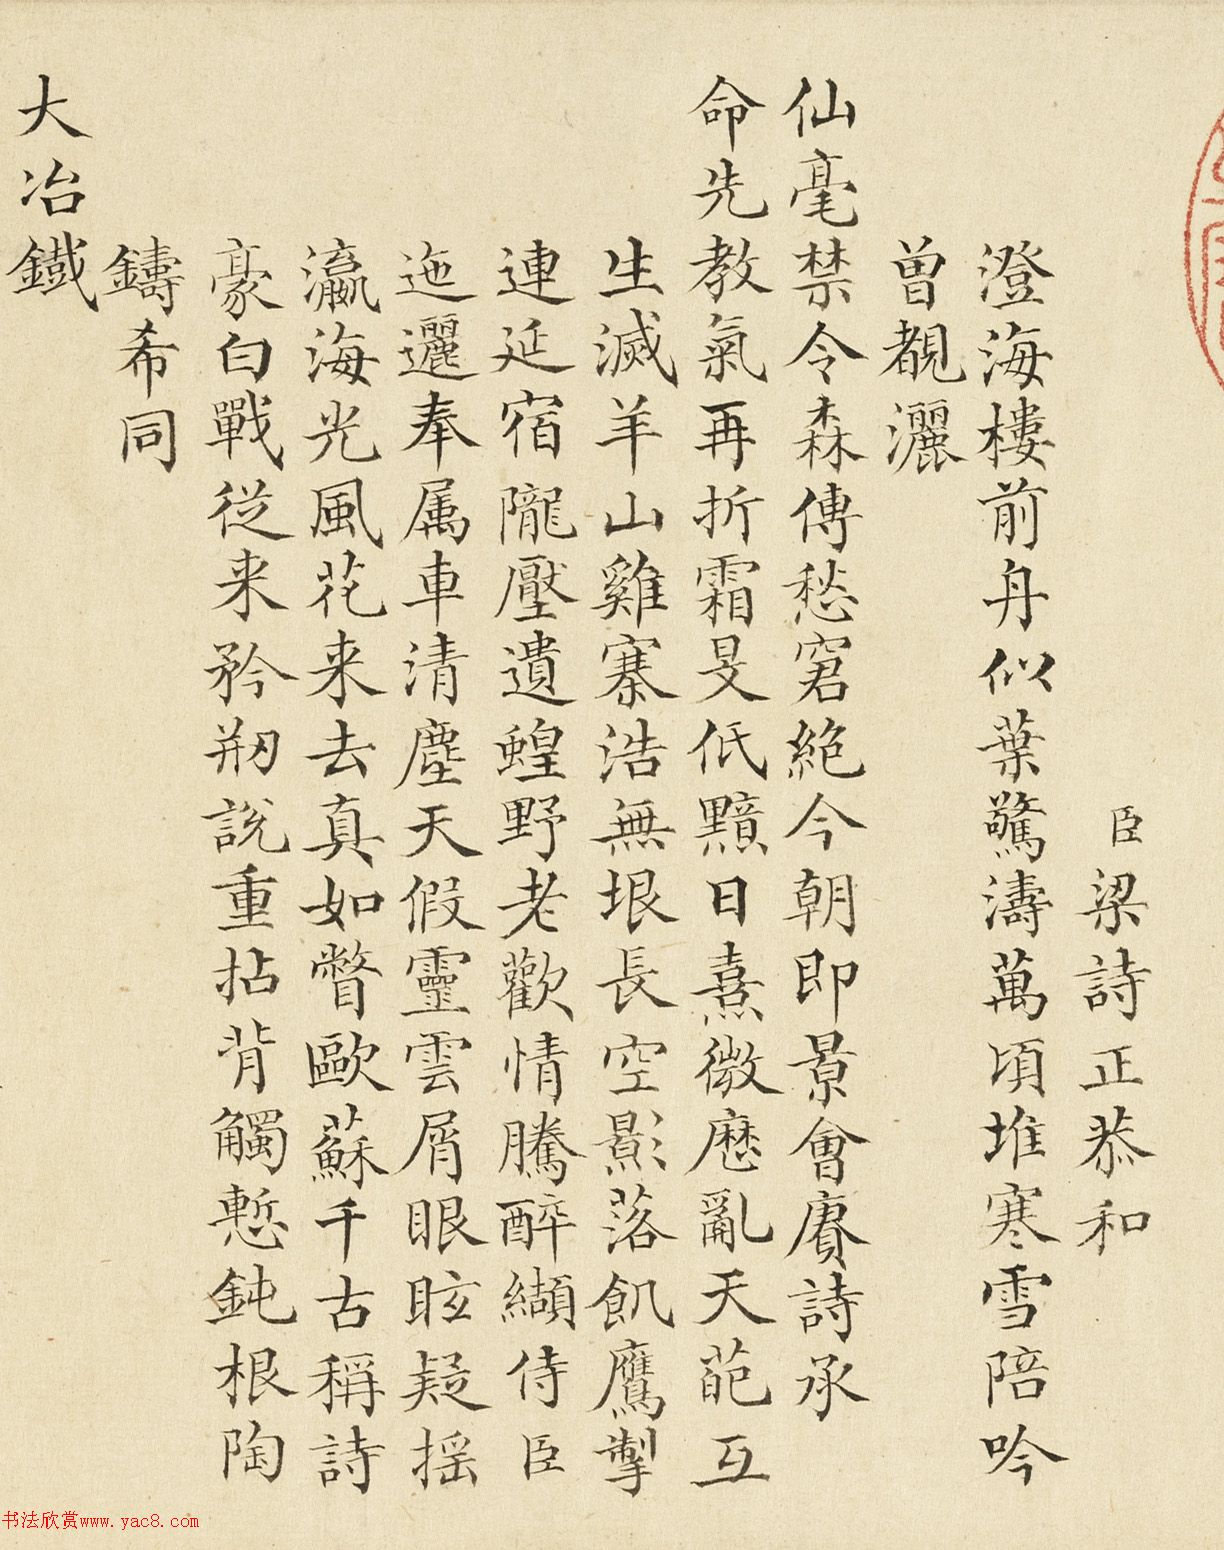 臣梁詩正恭和
澄海樓前舟似葉驚濤萬頃堆寒雪陪吟
曽覩灑
仙毫禁令森傳愁窘絶今朝即景會賡詩承
命先教氣再折霜旻低黯日熹微歷亂天葩互
生滅羊山雞寨浩無垠長空影落飢鷹掣
連延宿隴壓遺蝗野老歡情騰醉纈侍臣
迤邐奉属車清塵天假靈雲屑眼眩疑摇
瀛海光風花来去真如瞥歐蘇千古稱詩
豪白戰從来矜刱說重拈背觸慙鈍根陶
鑄希同
大冶鐵
书法欣赏www.yac8.com